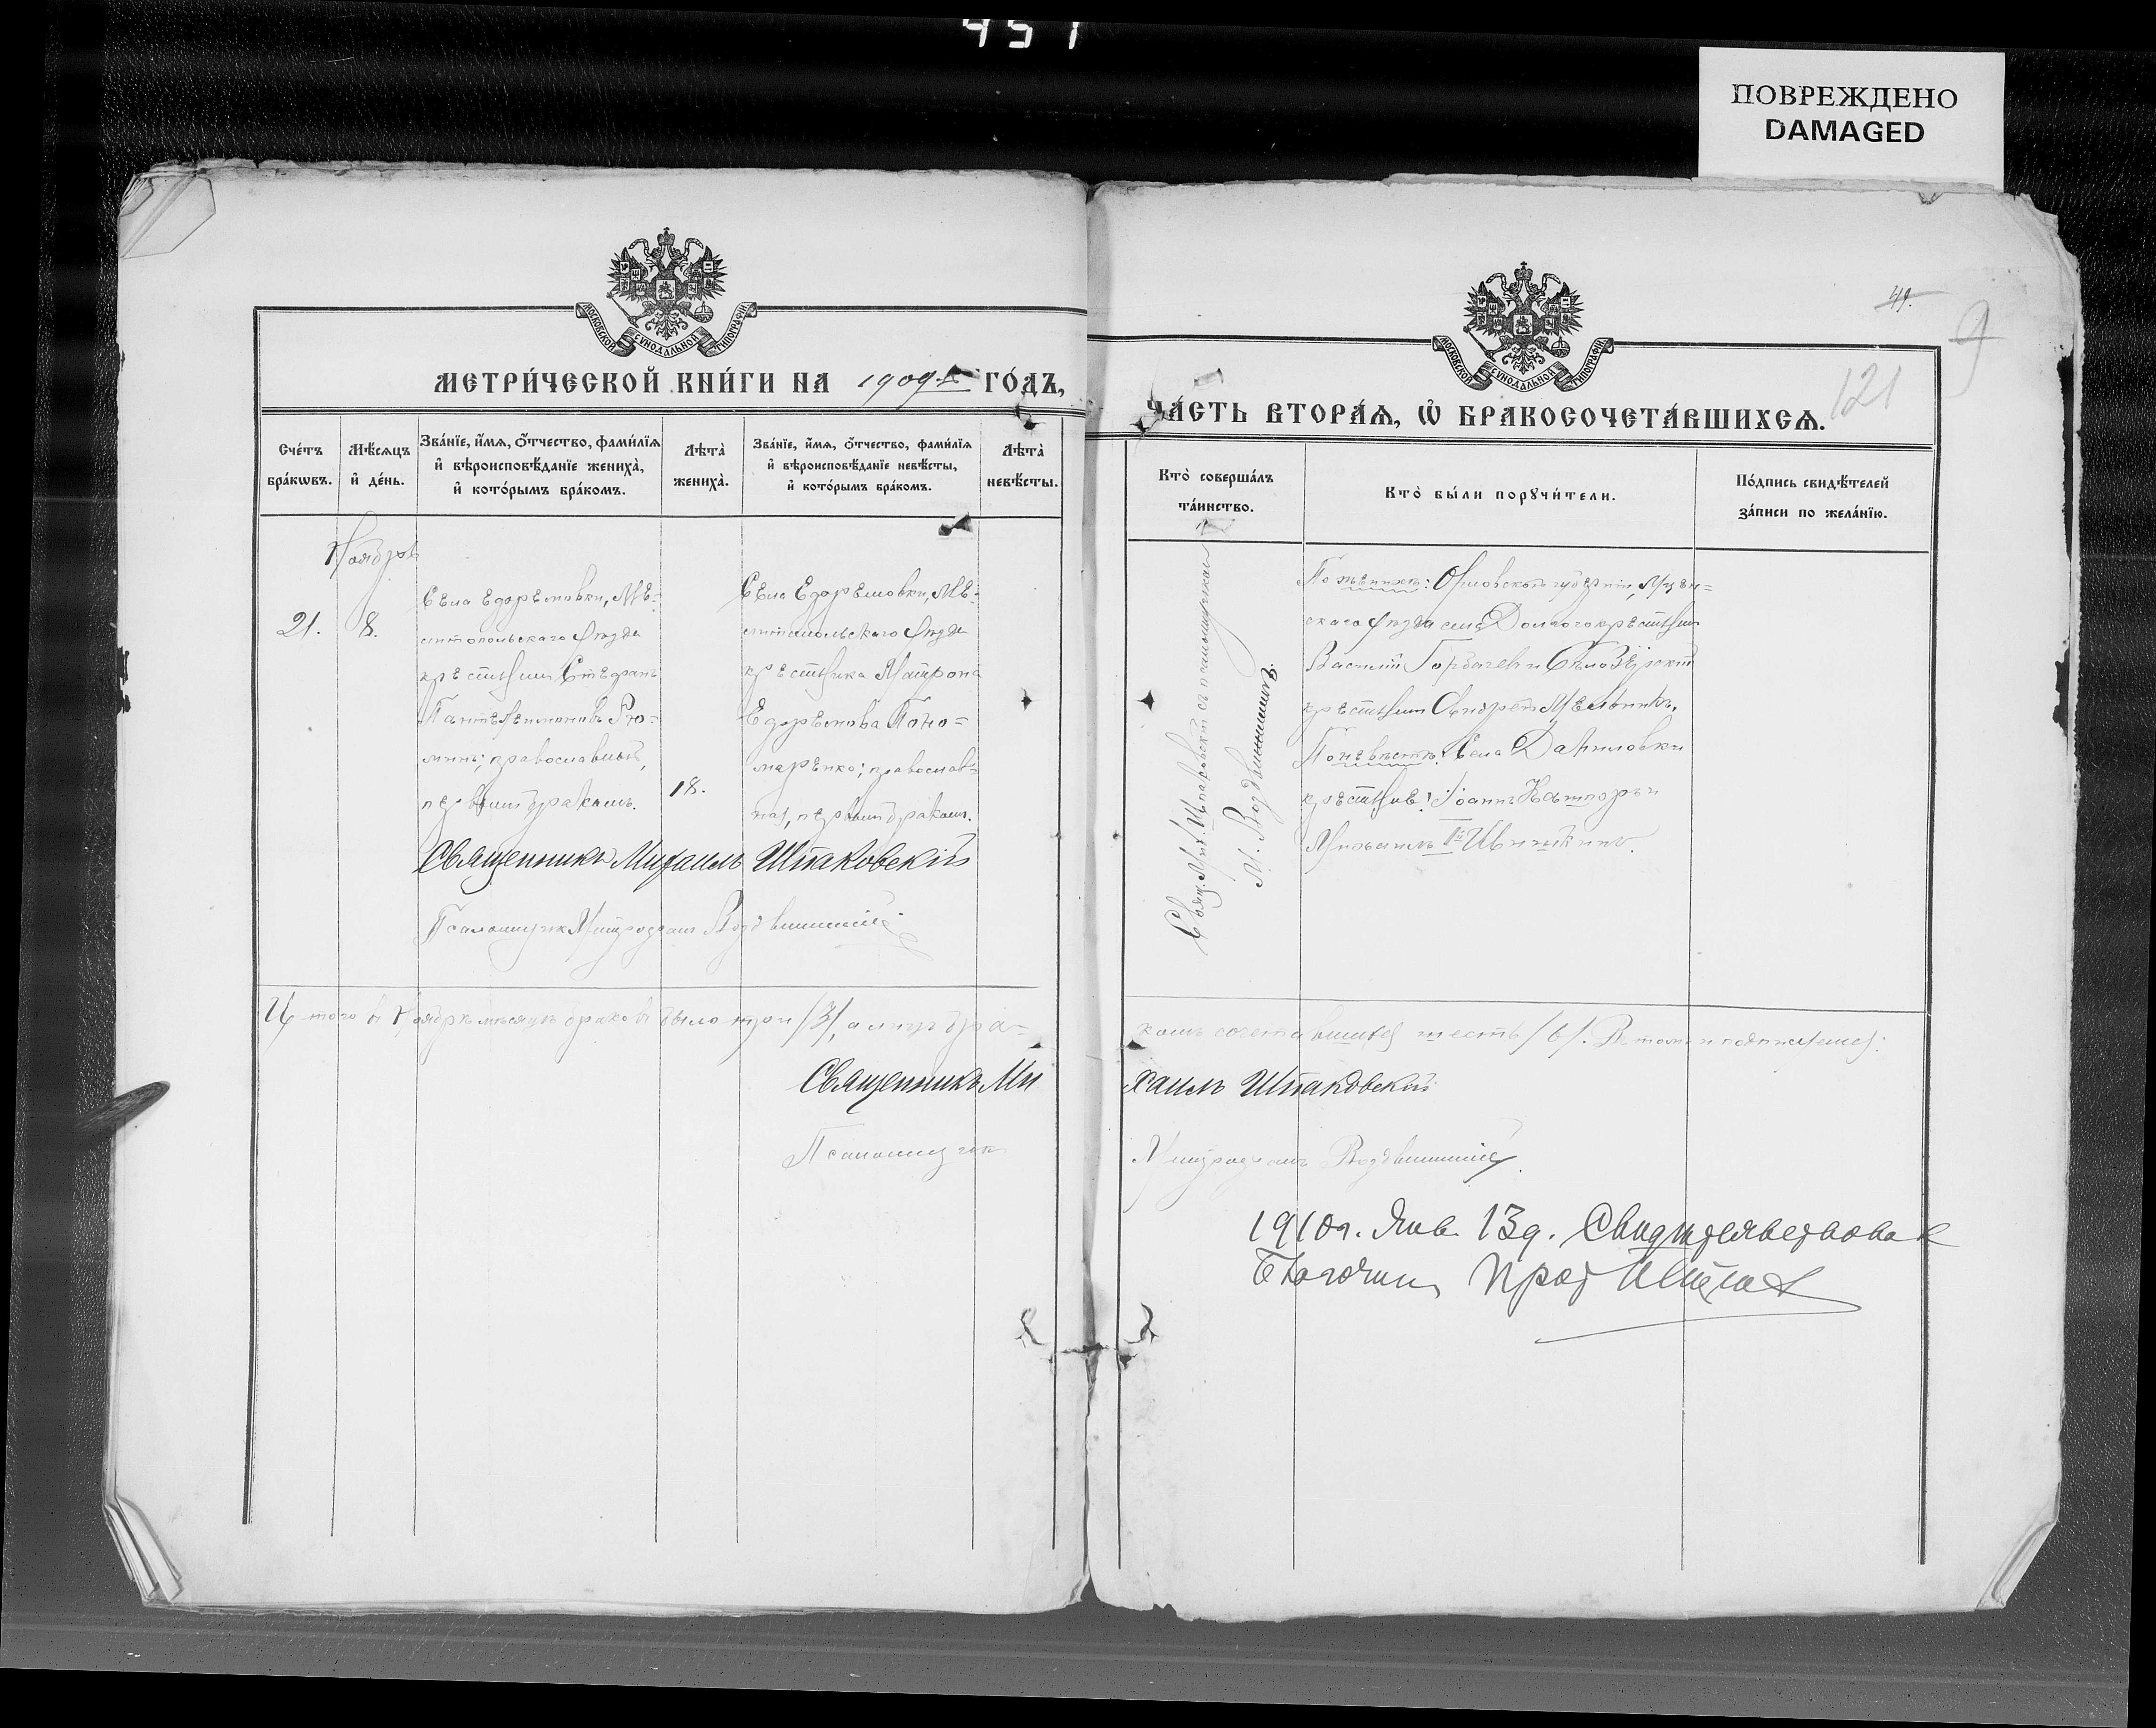 451
ПОВРЕЖДЕНО
DAMAGED
МОСКОВСКОЙ СУНОДАЛЬНОЙ ТИПОГРАФІИ
МЕТРИ́ЧЕСКОЙ КНИ́ГИ НА 1909-й ГО́ДЪ,
Сче́тъ бра́кωвъ.
Мѣ́сяцъ и҆ де́нь.
Зва́нїе, и҆́мя, ѻ҆́тчество, фами́лїя
и҆ вѣроисповѣ́данїе жениха̀,
и҆ кото́рымъ бра́комъ.
Лѣта̀ жениха̀.
Зва́нїе, и҆́мя, ѻ҆́тчество, фами́лїя
и҆ вѣроисповѣ́данїе невѣ́сты,
и҆ кото́рымъ бра́комъ.
Лѣта̀ невѣ́сты.
Ноябрь
21.
8.
Села Ефремовки, Ме-
литопольскаго уѣзда
крестьянинъ Стефанъ
Пантелеимоновъ Рю-
минъ; православный,
первымъ бракомъ.
18.
Села Ефремовки, Ме-
литопольскаго уѣзда
крестьянина Матрона
Ефремова Поно-
маренко; православ-
ная, первымъ бракомъ.
Священникъ Михаилъ Шпаковскій
Псаломщикъ Митрофанъ Воздвиженскій
Итого въ Ноябрѣ мѣсяцѣ браковъ было три /3/, а лицъ бра-
Священникъ Ми
Псаломщикъ
49.
9
121
МОСКОВСКОЙ СУНОДАЛЬНОЙ ТИПОГРАФІИ
ЧА́СТЬ ВТОРА́Я, Ѡ҆ БРАКОСОЧЕТА́ВШИХСЯ.
Кто̀ соверша́лъ
та́инство.
Кто̀ бы́ли порꙋчи́тели.
По́дпись свидѣ́телей
за́писи по жела́нїю.
Свящ. Мих. Шпаковскій съ псаломщикомъ
М. Воздвиженскимъ.
По женихѣ: Орловской губерніи, Мцен-
скаго уѣзда села Долгаго крестьянинъ
Василій Горбачевъ и
крестьянинъ Андрей Мельникъ.
По невѣстѣ: села Даниловки
крестьяне: Іоаннъ и
Михаилъ
комъ сочетавшихся шесть /6/. Въ томъ и подписуемся:
хаилъ Шпаковскій
Митрофанъ Воздвиженскій
1910 г. Янв. 13 д. Свидѣтельствовалъ
Благочин. Прот.